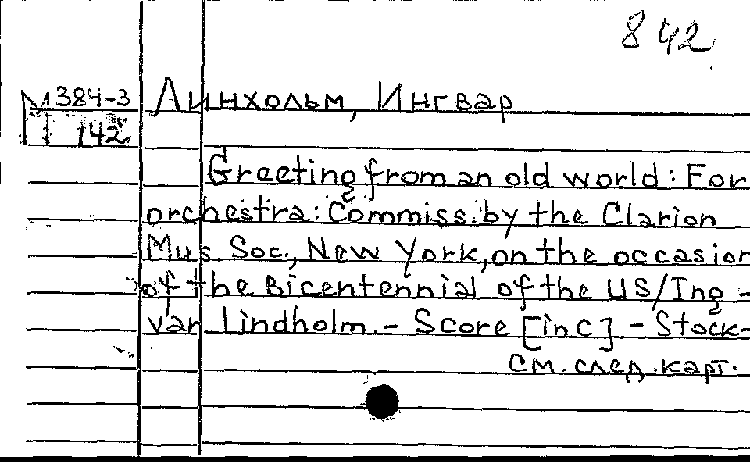 842
М 384-3 Линхольм, Ингвар
П 142
Greeting from an old world: For
orchestra: Commiss. by the Clarion
Mus. Soc., New York, on the occasion
of the Bicentennial of the US/Ing-
var Lindholm. - Score [in C] - Stock-
см. след. карт.